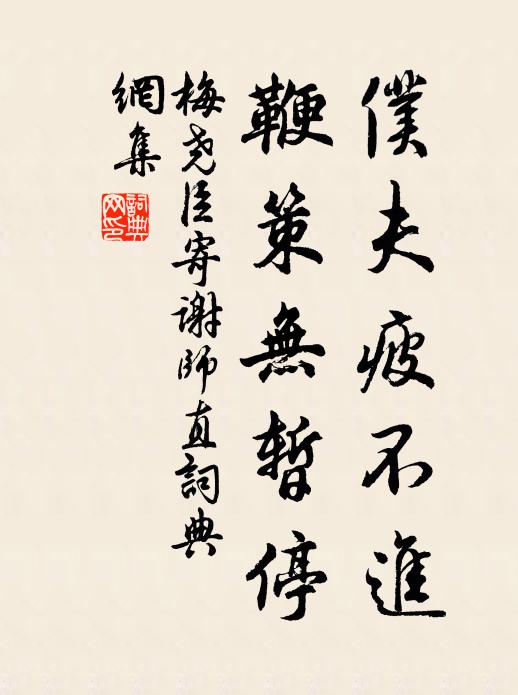 僕夫疲不進
鞭策無暫停
梅尧臣寄谢師直詞典
網集
詞典
网印